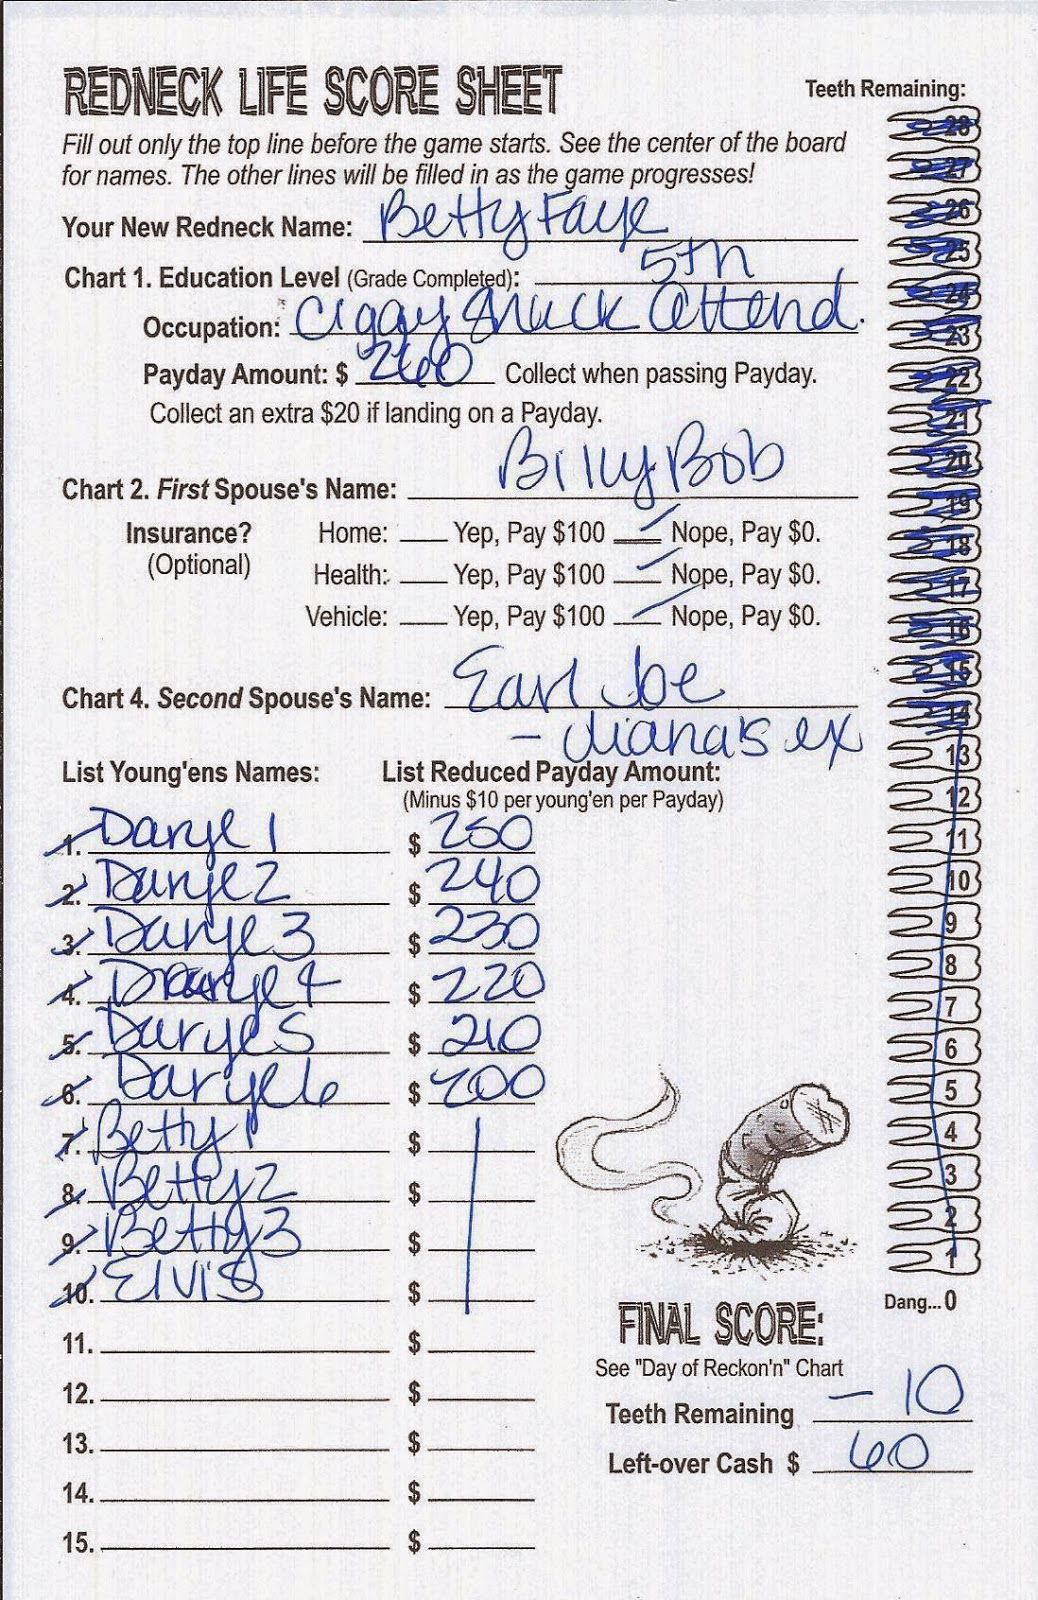 REDNECK LIFE SCORE SHEET
Teeth Remaining:
Fill out only the top line before the game starts. See the center of the board
for names. The other lines will be filled in as the game progresses!
Your New Redneck Name: Betty Faye
Chart 1. Education Level (Grade Completed): 5th
Occupation: Ciggay Shack Attend.
Payday Amount: $ 260 Collect when passing Payday.
Collect an extra $20 if landing on a Payday.
Chart 2. First Spouse's Name: Billy Bob
Insurance? Home: Yep, Pay $100 Nope, Pay $0.
(Optional) Health: Yep, Pay $100 Nope, Pay $0.
Vehicle: Yep, Pay $100 Nope, Pay $0.
Chart 4. Second Spouse's Name: Earl Joe
- diana's ex
List Young'ens Names: List Reduced Payday Amount:
(Minus $10 per young'en per Payday)
1. Daryle 1 $ 250
2. Daryle 2 $ 240
3. Daryle 3 $ 230
4. Daryle 4 $ 220
5. Daryle 5 $ 210
6. Daryle 6 $ 200
7. Betty 1 $
8. Betty 2 $
9. Betty 3 $
10. Elvis $
11. $
12. $
13. $
14. $
15. $
28
27
26
25
24
23
22
21
20
19
18
17
16
15
14
13
12
11
10
9
8
7
6
5
4
3
2
1
Dang...0
FINAL SCORE:
See "Day of Reckon'n" Chart
Teeth Remaining - 10
Left-over Cash $ 60